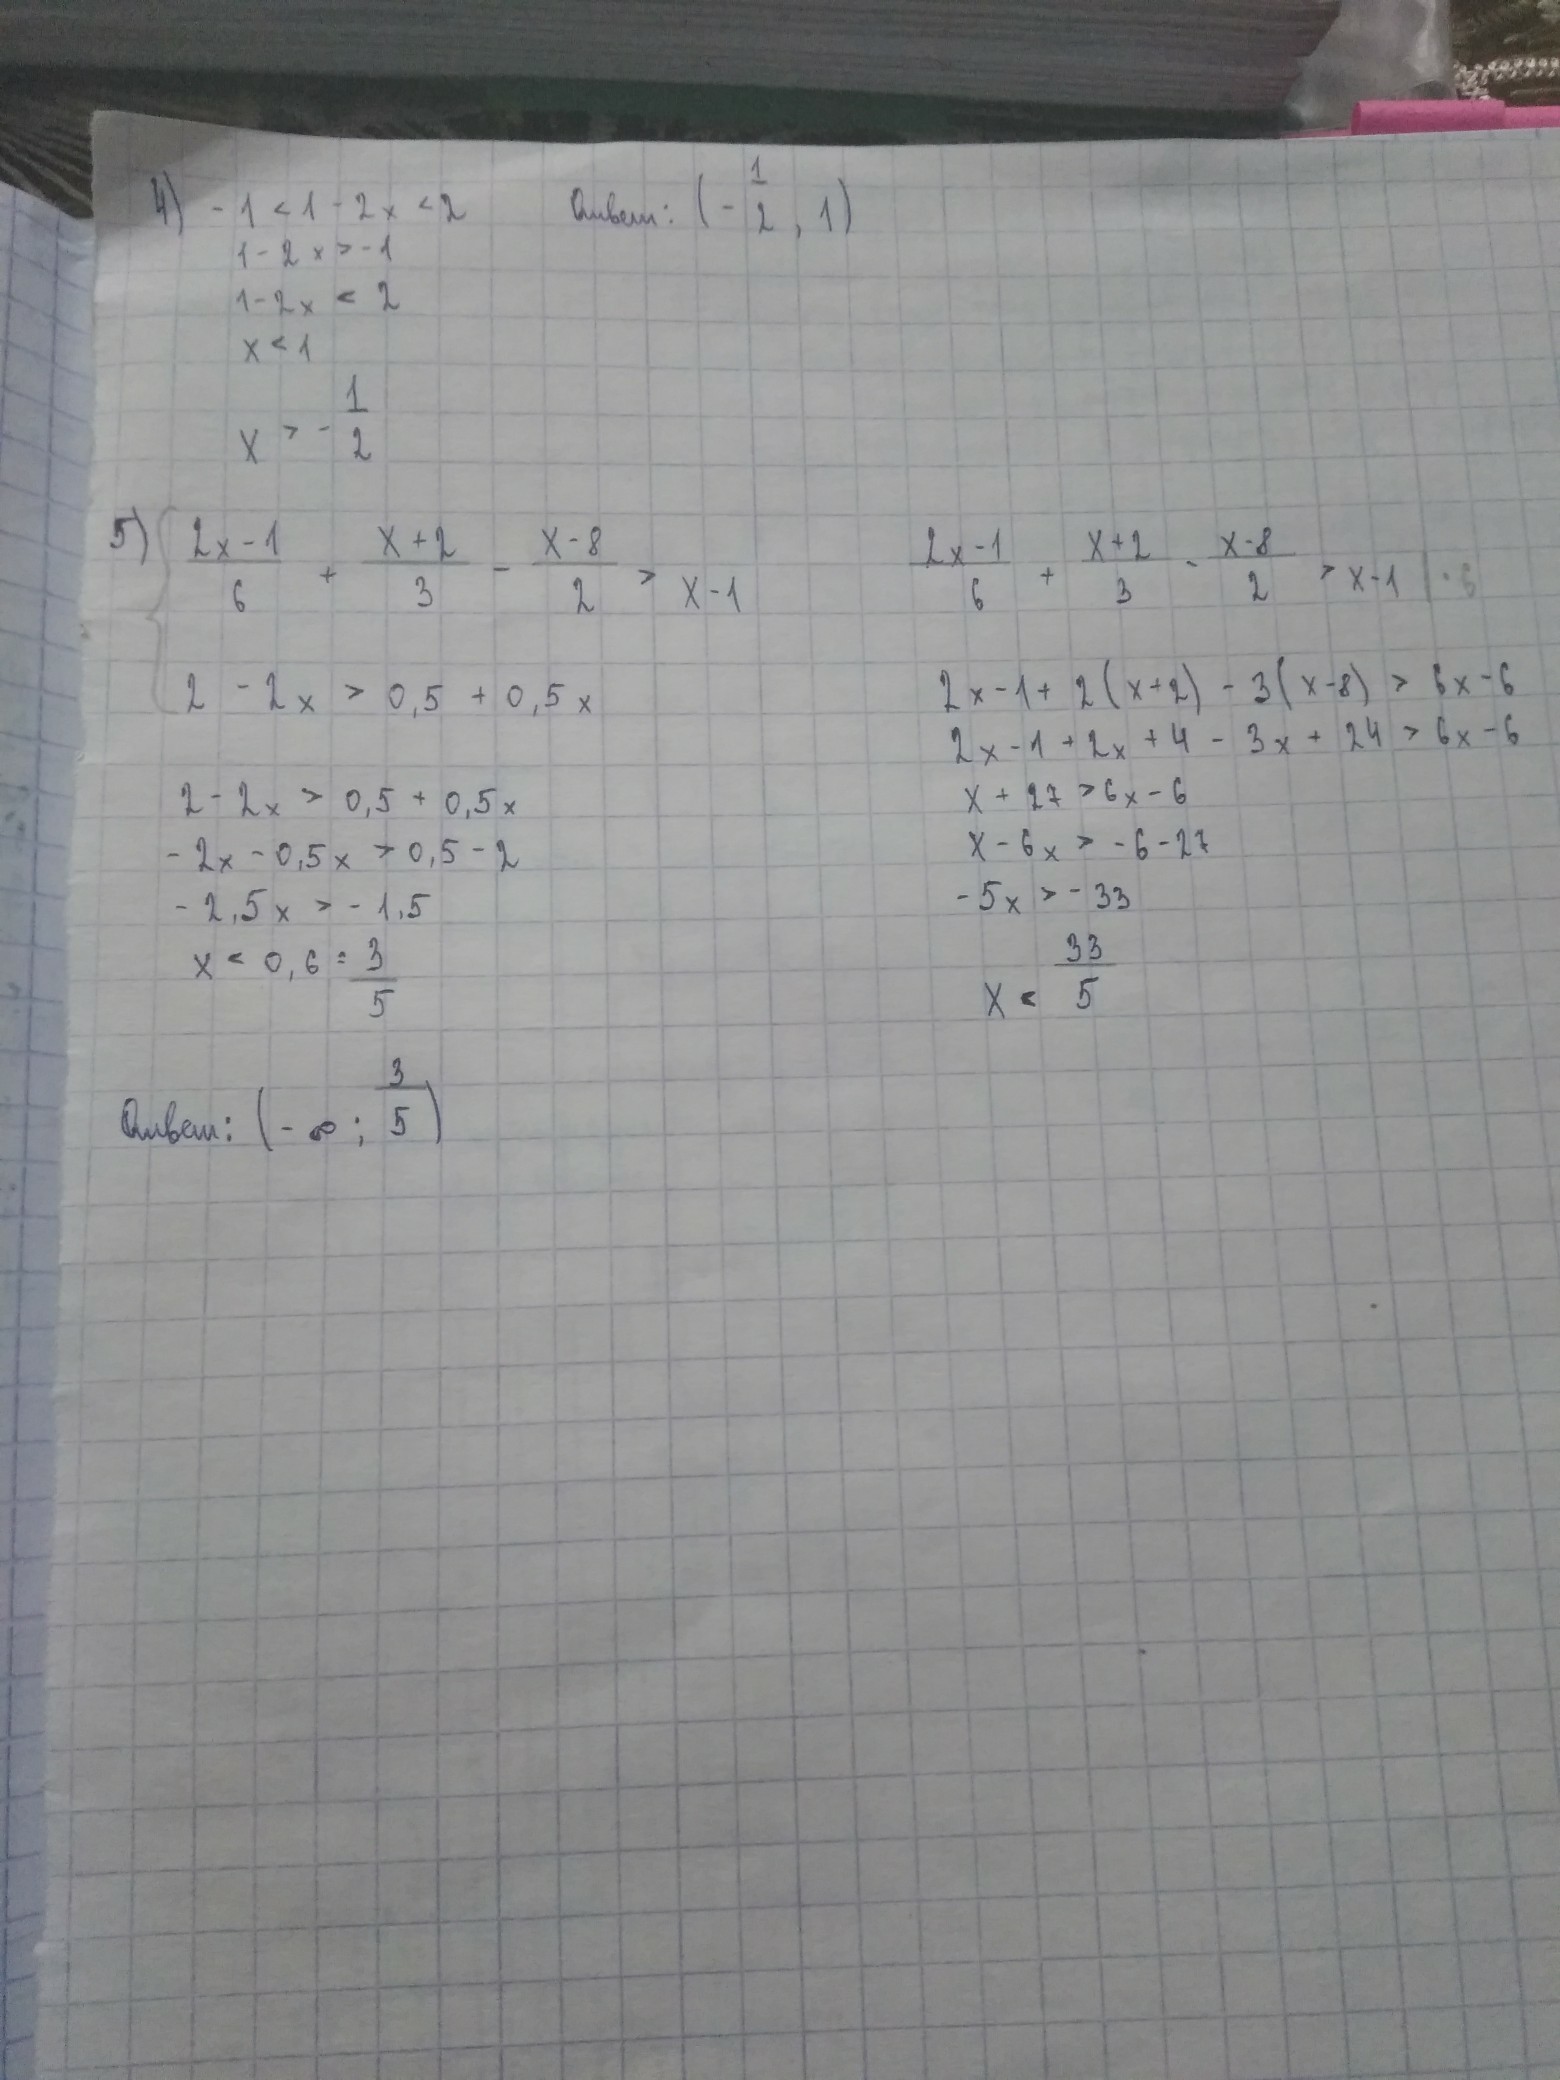 4) -1 < 1 - 2x < 2
Ответ: (-1/2, 1)
1 - 2x > -1
1 - 2x < 2
x < 1
x > -1/2
5) { (2x-1)/6 + (x+2)/3 - (x-8)/2 > x-1
2 - 2x > 0,5 + 0,5x
2 - 2x > 0,5 + 0,5x
-2x - 0,5x > 0,5 - 2
-2,5x > -1,5
x < 0,6 = 3/5
(2x-1)/6 + (x+2)/3 - (x-8)/2 > x-1 | · 6
2x - 1 + 2(x+2) - 3(x-8) > 6x - 6
2x - 1 + 2x + 4 - 3x + 24 > 6x - 6
x + 27 > 6x - 6
x - 6x > -6 - 27
-5x > -33
x < 33/5
Ответ: (-∞; 3/5)